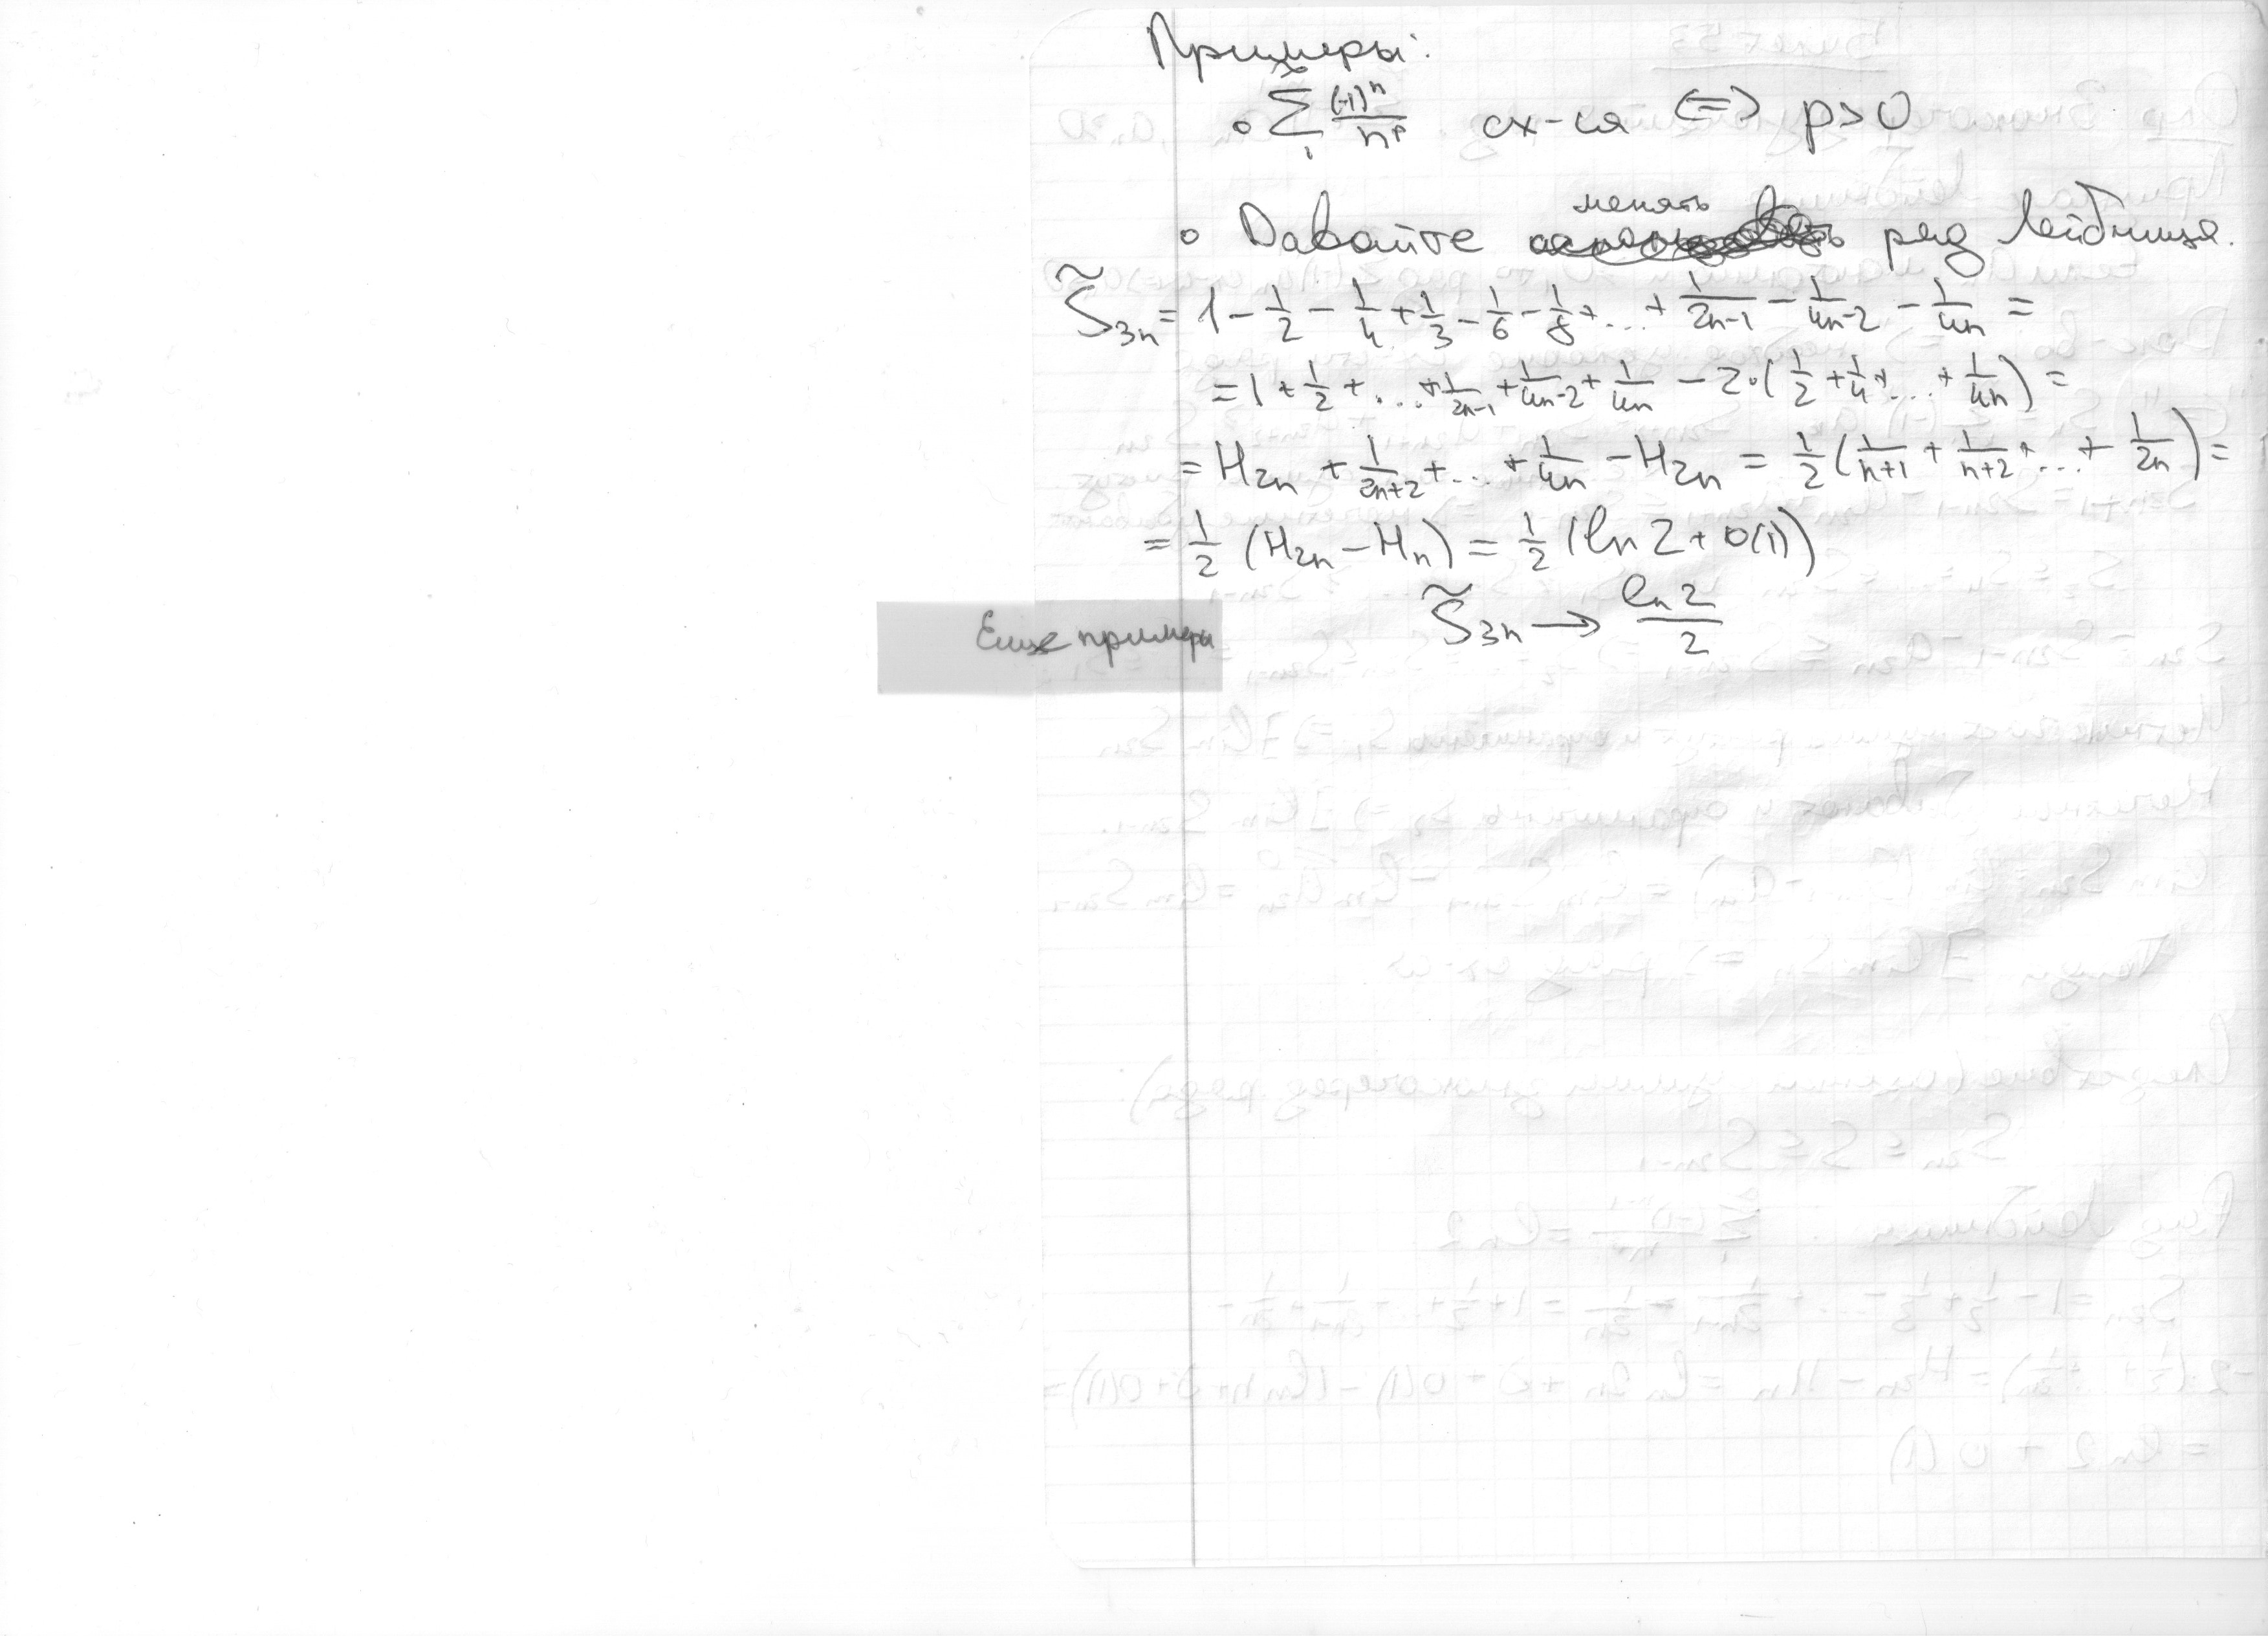 Примеры:
∘ ∑₁^∞ (-1)ⁿ/nᵖ сх-ся <=> p>0
менять
∘ Давайте ряд Лейбница.
S̃₃ₙ = 1 - 1/2 - 1/4 + 1/3 - 1/6 - 1/8 + ... + 1/(2n-1) - 1/(4n-2) - 1/(4n) =
= 1 + 1/2 + ... + 1/(2n-1) + 1/(4n-2) + 1/(4n) - 2·(1/2 + 1/4 + ... + 1/(4n)) =
= H₂ₙ + 1/(2n+2) + ... + 1/(4n) - H₂ₙ = 1/2 (1/(n+1) + 1/(n+2) + ... + 1/(2n)) =
= 1/2 (H₂ₙ - Hₙ) = 1/2 (ln 2 + o(1))
S̃₃ₙ → ln 2/2
Еще примеры